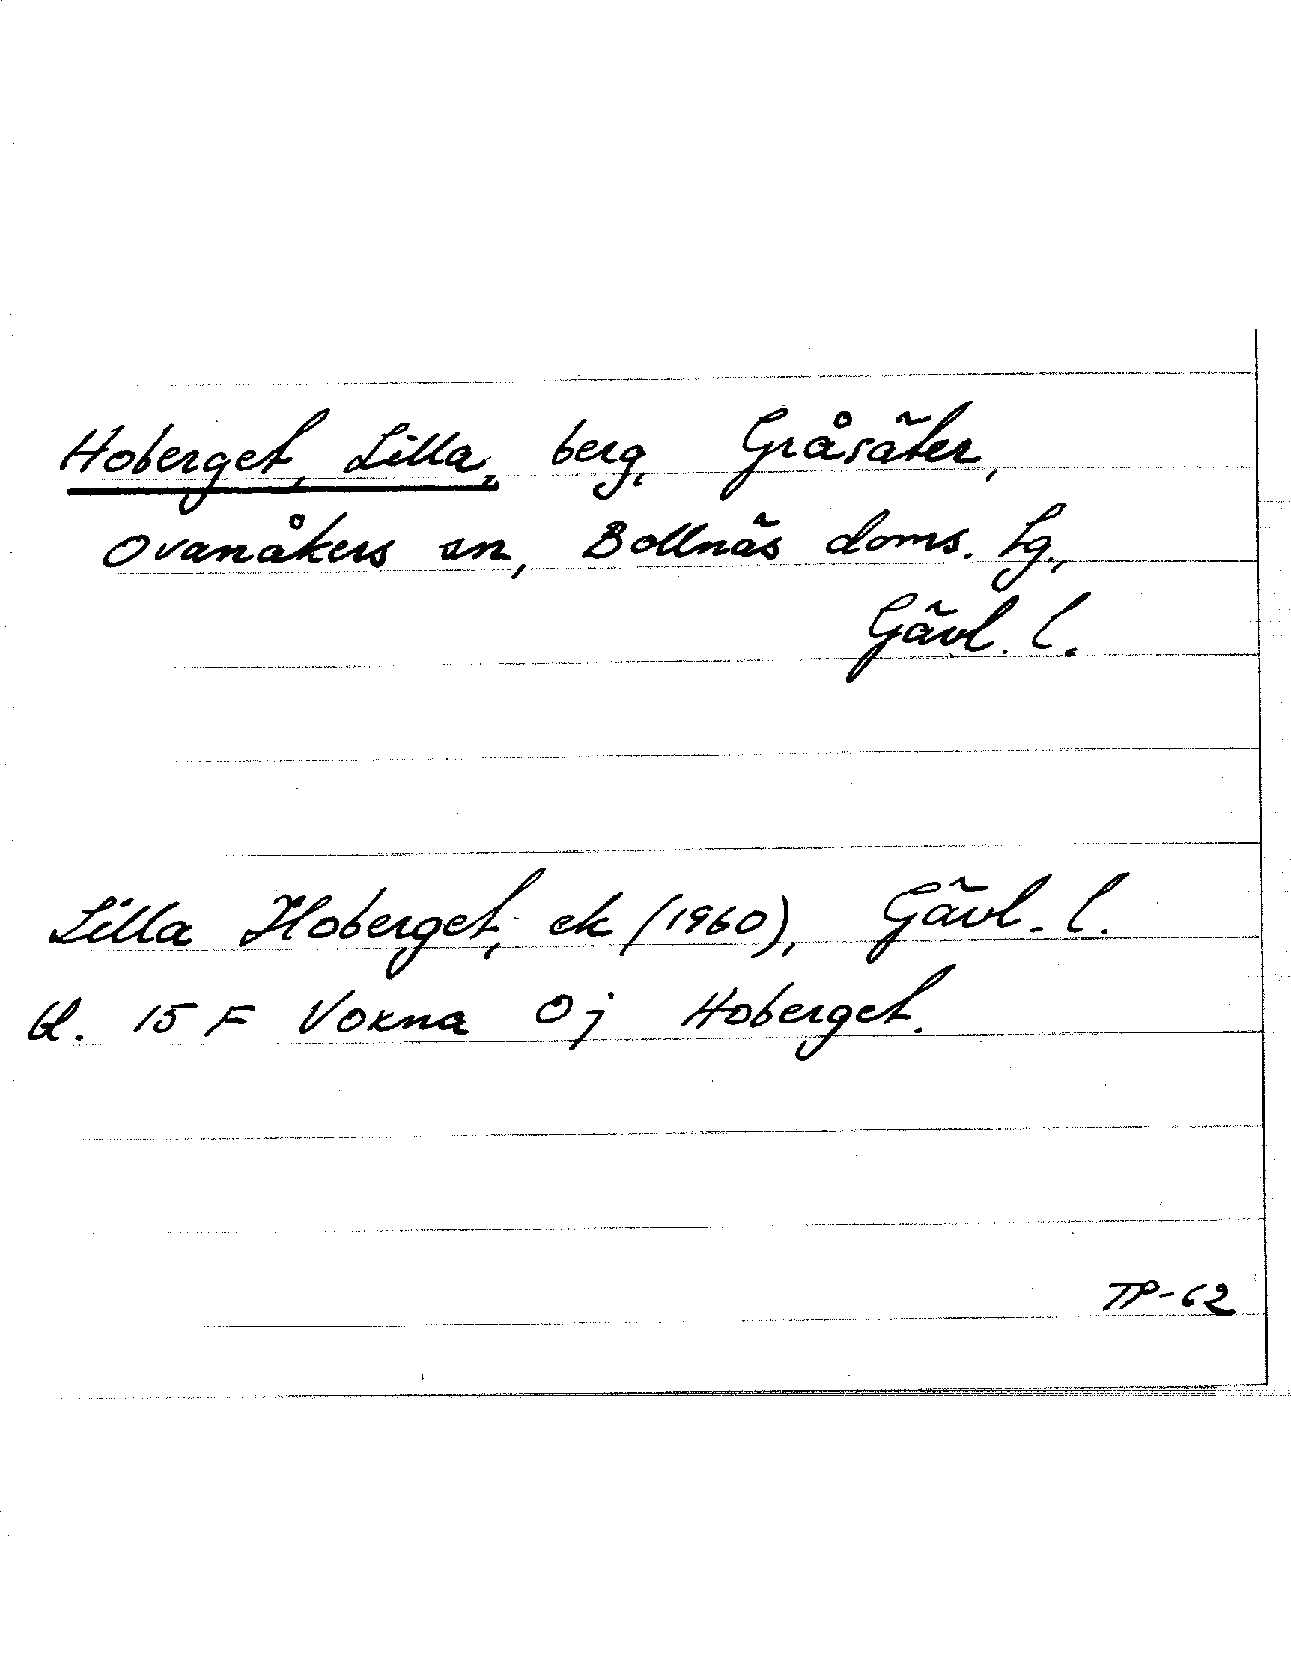 Hoberget, Lilla, berg, Gråsäter,
Ovanåkers sn, Bollnäs doms. tg.,
Gävl. l.
Lilla Hoberget, ek (1960), Gävl. l.
bl. 15 F Voxna 0j Hoberget.
TP-62